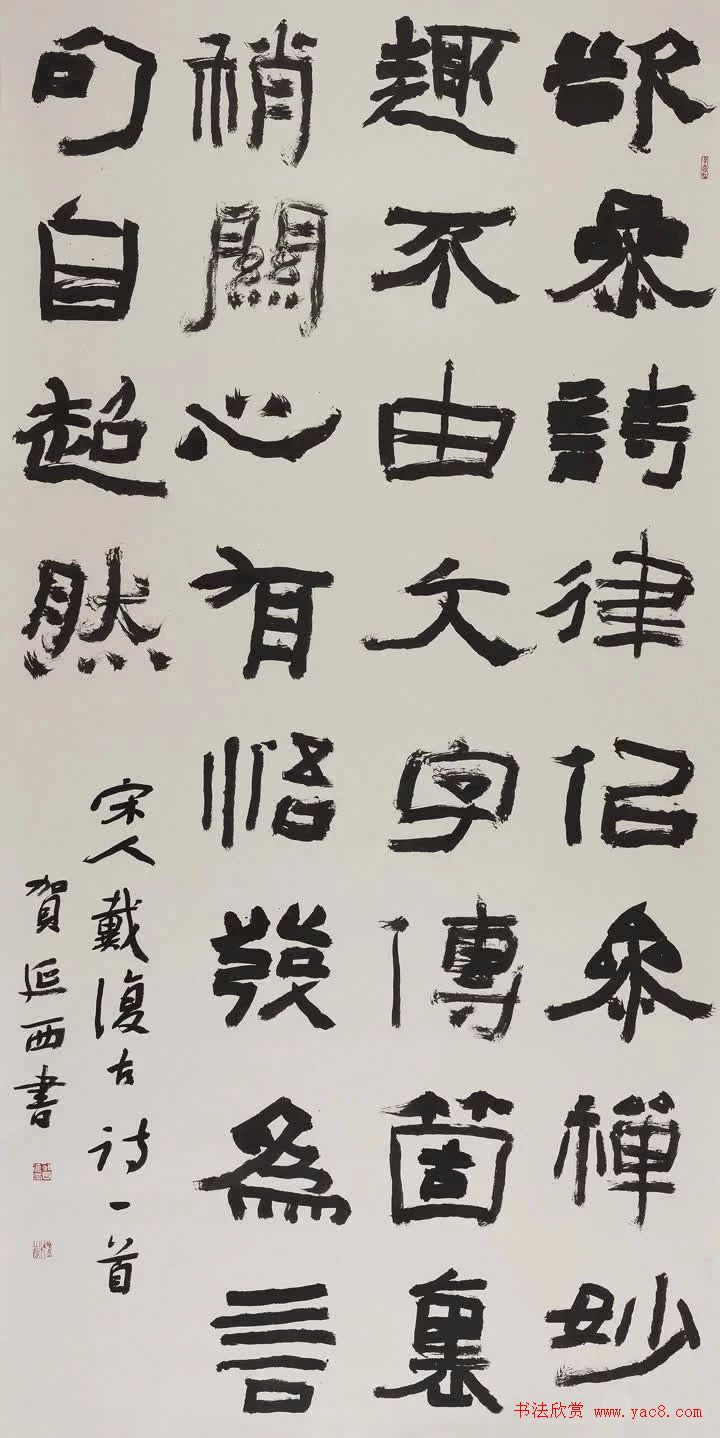 欲參詩律似參禪妙
趣不由文字傳箇裏
稍關心有悟發為言
句自超然
宋人戴復古诗一首
賀延西書
书法欣赏 www.yac8.com